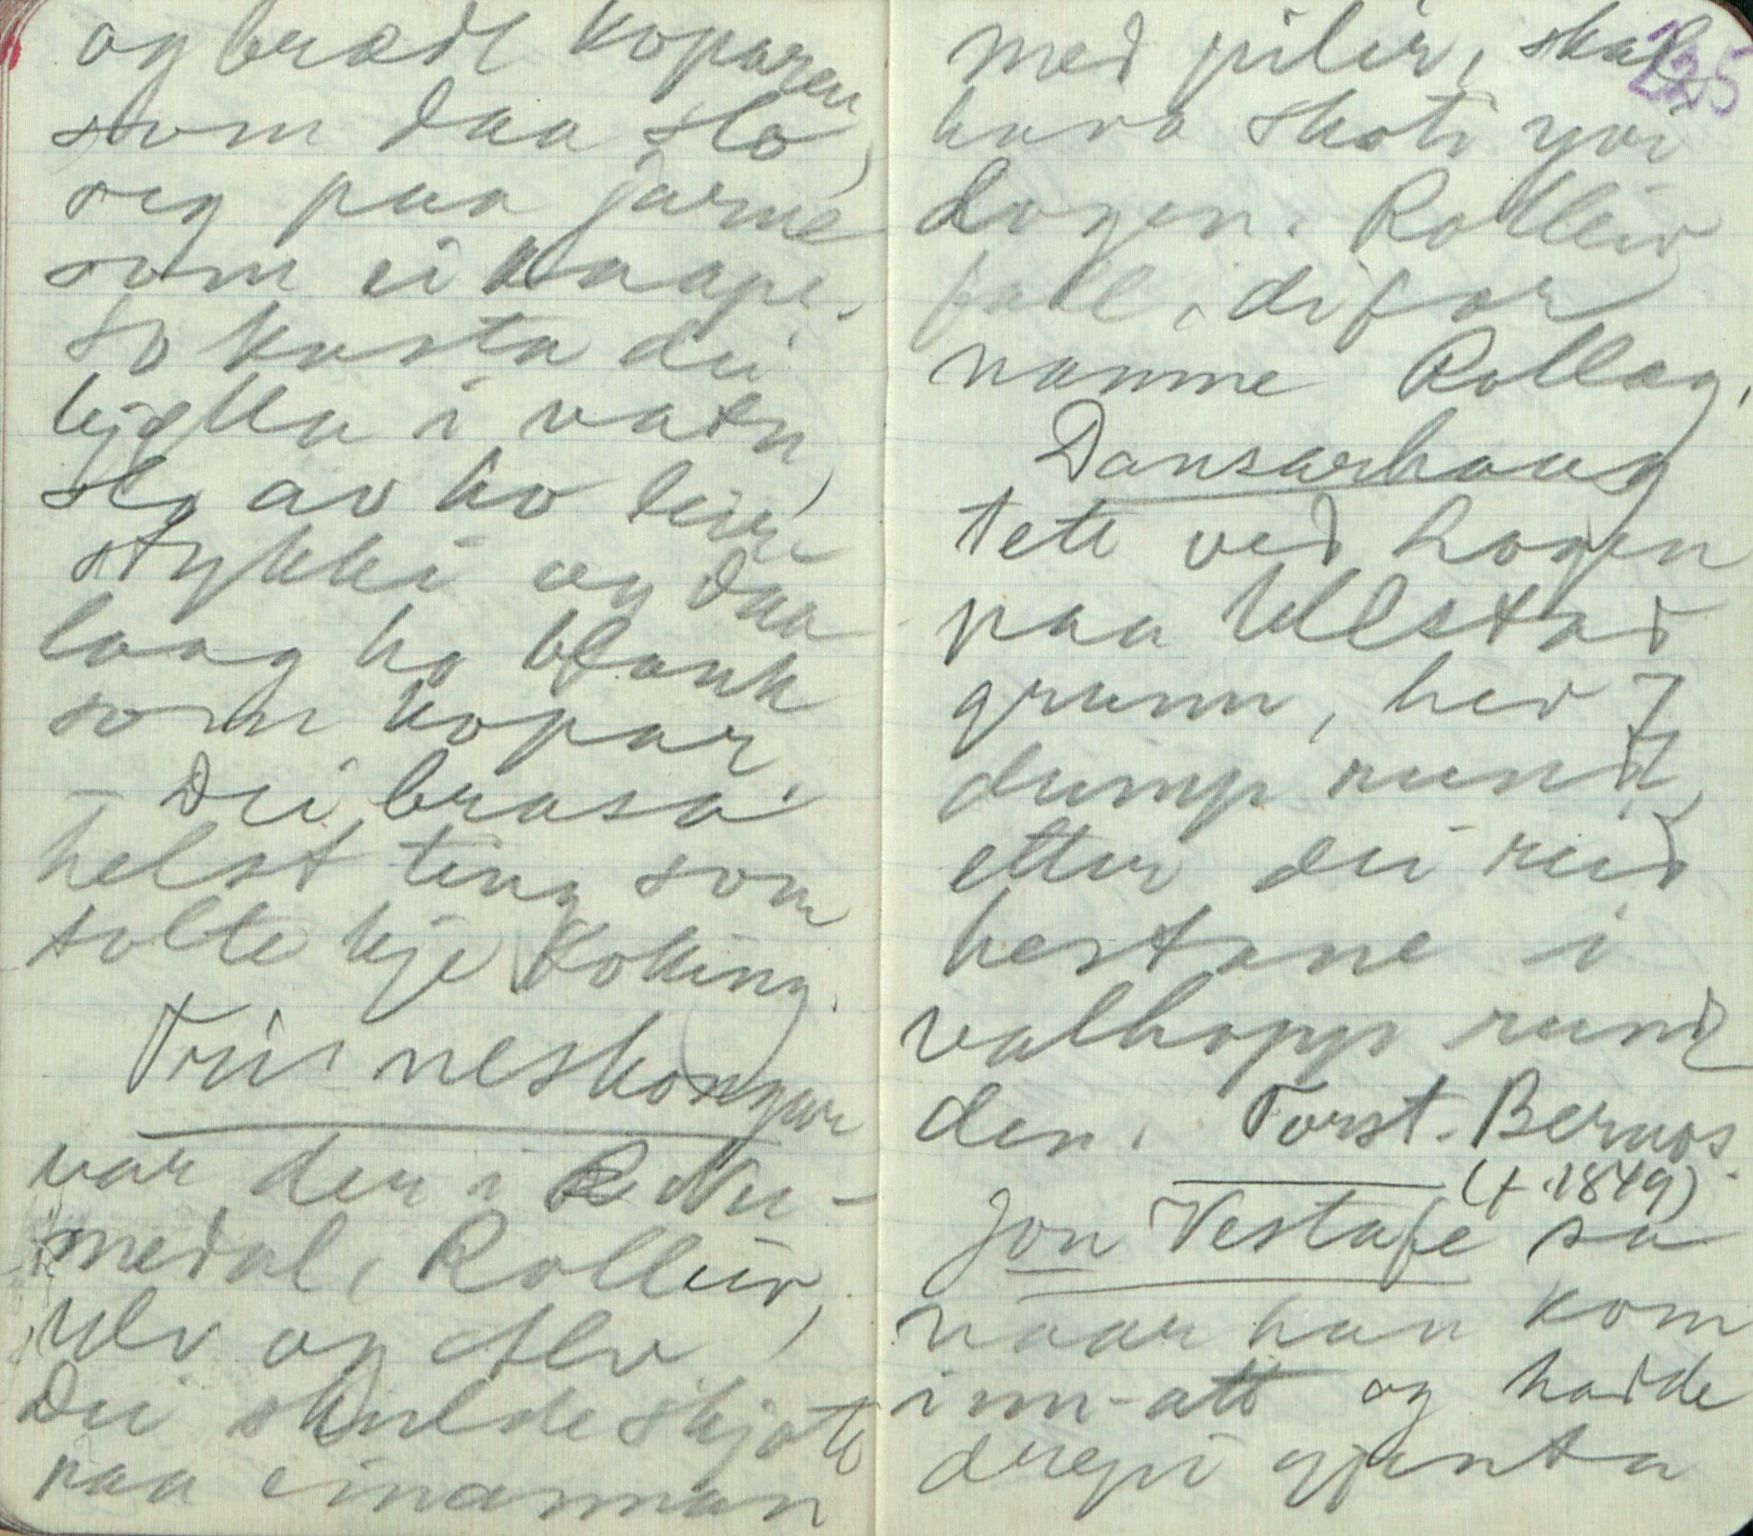 og brædt koparen
som daa slo
seg paa jarne
som ei kaape.
So kasta dei
bjølla i vatn,
slo av ho leir-
stykki og daa
laag ho blank
som kopar.
– Dei brasa
helst ting som
tolte kje koking.
Trii neskongar
var der i Nu-
medal, Rolleiv,
Ulv og Alv.
Dei skulde skjote
paa einannan
225
med pilir, skal
hava skoti yvi
Logen. Rolleiv
fall, difor
namne Rollag.
Dansarhaug
tett ved Logen
paa Ullstad
grunn, her 7
dump rundt,
etter dei reid
hestane i
valhopp rundt
den. Torst. Bernos.
(f. 1849)
Jon Vestafe sa
naar han kom
inn-att og hadde
drepi gjenta